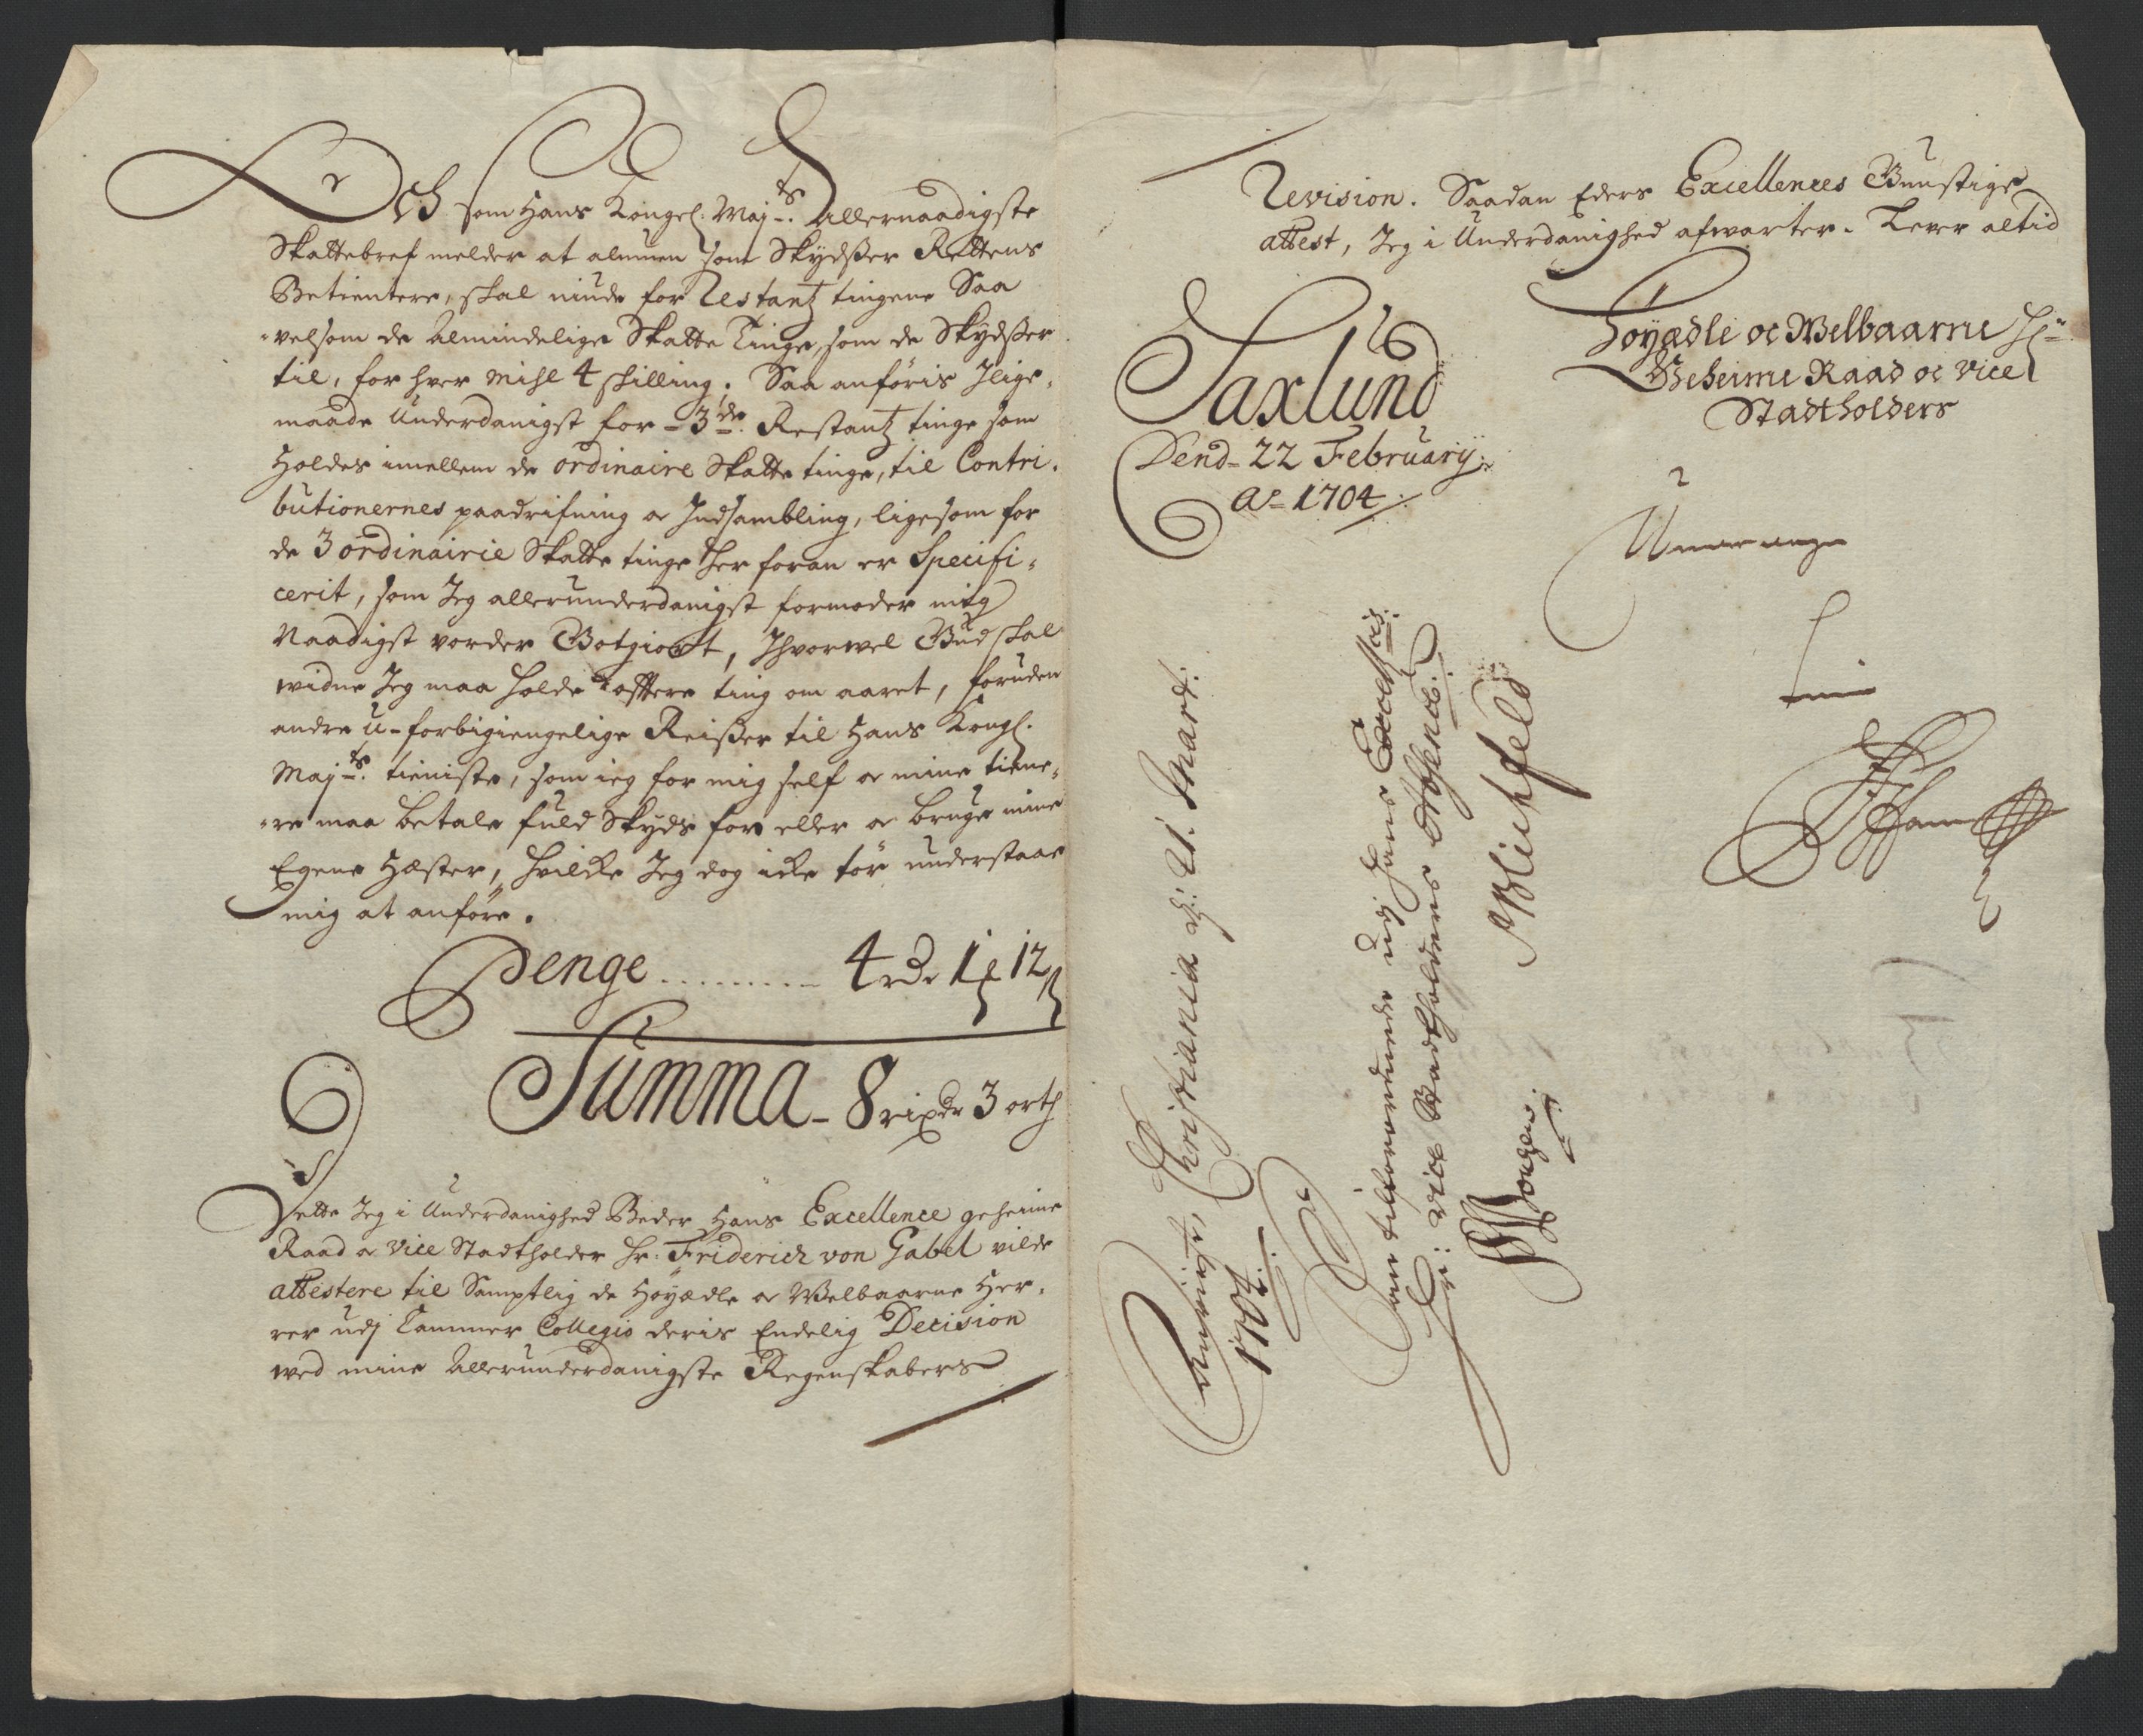 Och som Hans Kongel: Maj:ts Allernaadigste
Skattebref melder at almuen som Skydsser Rettens
Betientere, skal niude for Restantz tingene Saa
velsom de Almindelige Skatte Tinge, som de Skydsser
til, for hver Mihl 4 skilling. Saa anføris Ilige-
maade Underdanigst for 3de Restantz tinge som
Holdes imellem de ordinaire Skatte tinge, til Contri-
butionernes paadrifning oc Indsambling, ligesom for
de 3 ordinairie Skatte tinge her foran er Specifi-
cerit, som Jeg allerunderdanigst formoder mig
Naadigst vorder Botgiort, Ihvorvel Gud skal
vidne Jeg maa holde offtere ting om aaret, foruden
andre u-forbigiengelige Reisser til Hans Kongl.
Maj:ts tieniste, som ieg for mig self oc mine tiene-
re maa betale fuld Skyds for eller oc bruge mine
Egene Hæster, hvilcke Jeg dog icke tør understaae
mig at anføre.
Penge ......... 4 rdr 1 12
Summa - 8 rixdr 3 orth
Dette Jeg i Underdanighed Beder Hans Excellence geheime
Raad oc Vice Stadtholder Hr: Friderich von Gabel vilde
attestere til Samptlig de Høyædle oc Welbaarne Her-
rer udj Cammer Collegio deris Endelig Decision
ved mine Allerunderdanigste Regenskabers
Revision. Saadan Eders Excellences Gunstige
attest, Jeg i Underdanighed afvarter. Lever altid
Saxlund
Dend 22 February
Ao 1704
Høyædle oc Welbaarne Hr
Geheime Raad oc Vice
Stadtholders
Christiania d: 21. Mart:
1704.
tilforordnede udj Hans Excell:
Hr: Vice Stadtholders